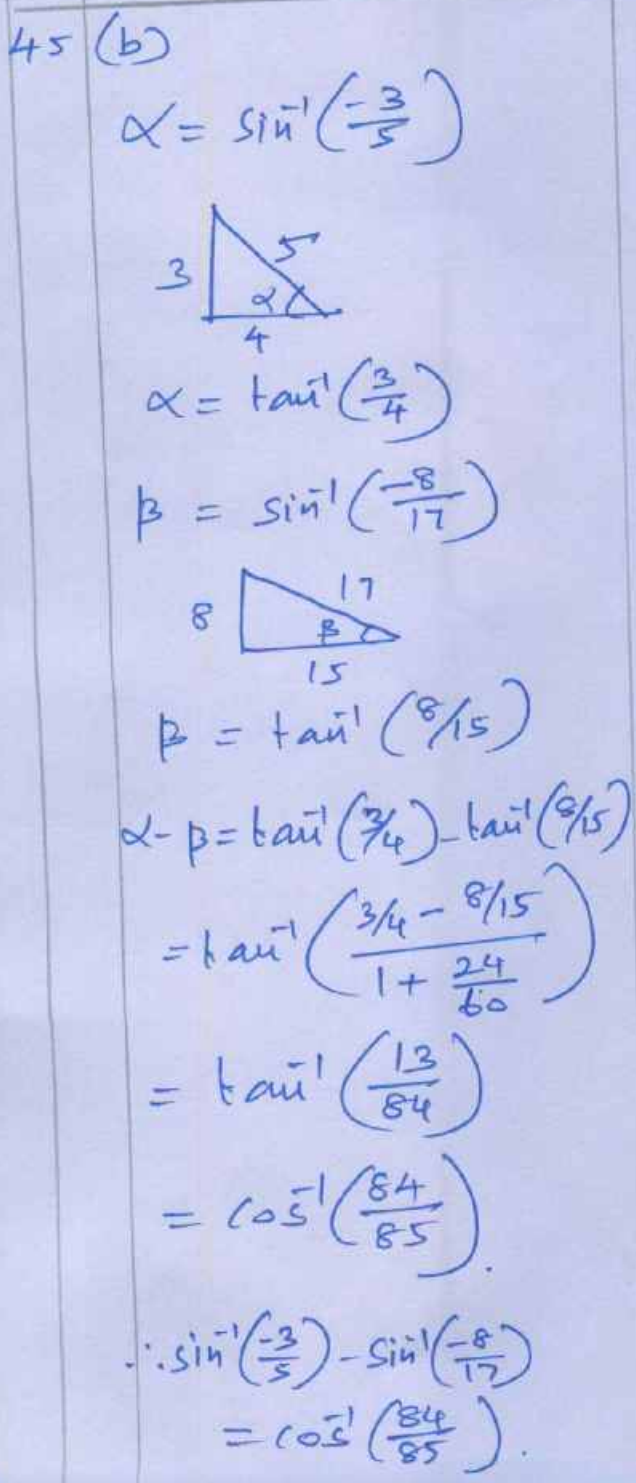 45 (b)
α = sin⁻¹(-3/5)
3 5 α
4
α = tan⁻¹(3/4)
β = sin⁻¹(-8/17)
8 17 β
15
β = tan⁻¹(8/15)
α-β = tan⁻¹(3/4) - tan⁻¹(8/15)
= tan⁻¹((3/4 - 8/15)/(1 + 24/60))
= tan⁻¹(13/84)
= cos⁻¹(84/85).
∴ sin⁻¹(-3/5) - sin⁻¹(-8/17)
= cos⁻¹(84/85).